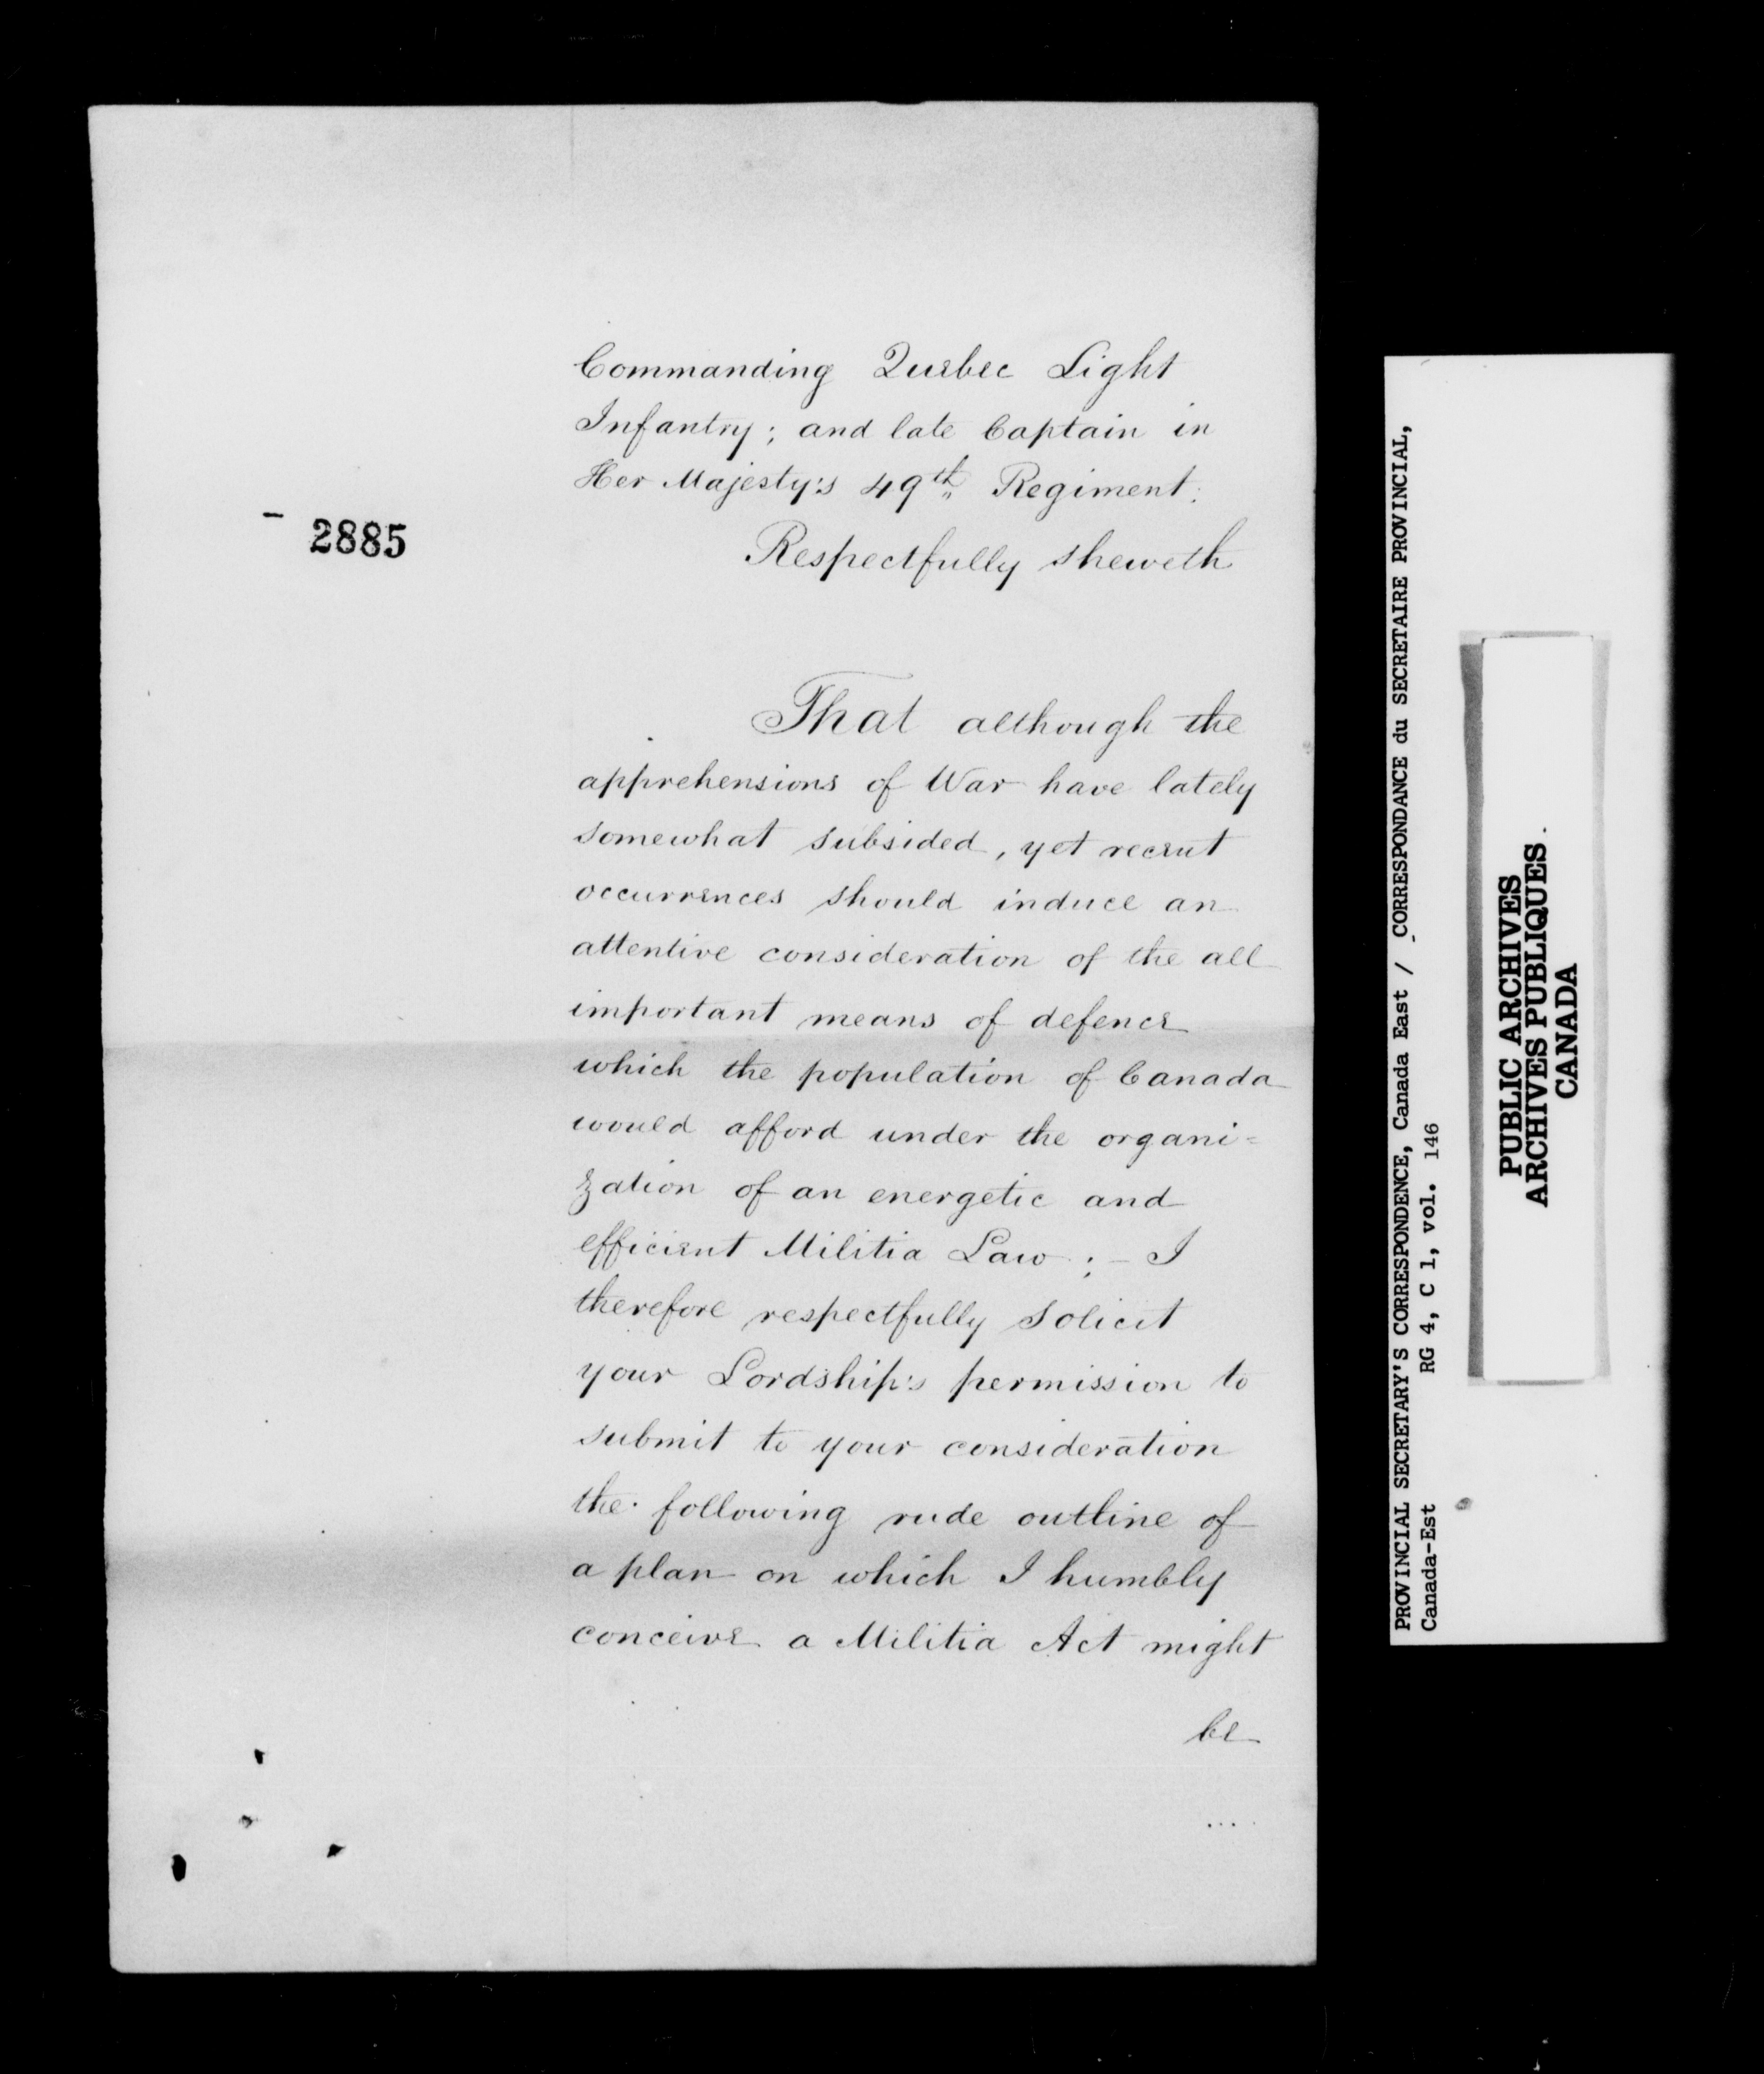 Commanding Quebec Light
Infantry; and late Captain in
Her Majesty's 49th Regiment.
- 2885
Respectfully sheweth
That although the
apprehensions of War have lately
somewhat subsided, yet recent
occurrences should induce an
attentive consideration of the all
important means of defence
which the population of Canada
would afford under the organi=
zation of an energetic and
efficient Militia Law; - I
therefore respectfully solicit
your Lordship's permission to
submit to your consideration
the following rude outline of
a plan on which I humbly
conceive a Militia Act might
be
....
PROVINCIAL SECRETARY'S CORRESPONDENCE, Canada East / CORRESPONDANCE du SECRETAIRE PROVINCIAL,
Canada-Est RG 4, C 1, vol. 146
PUBLIC ARCHIVES
ARCHIVES PUBLIQUES
CANADA